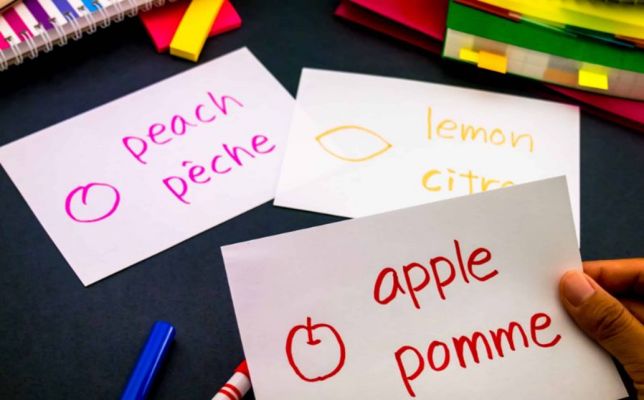 peach
pêche
lemon
apple
pomme